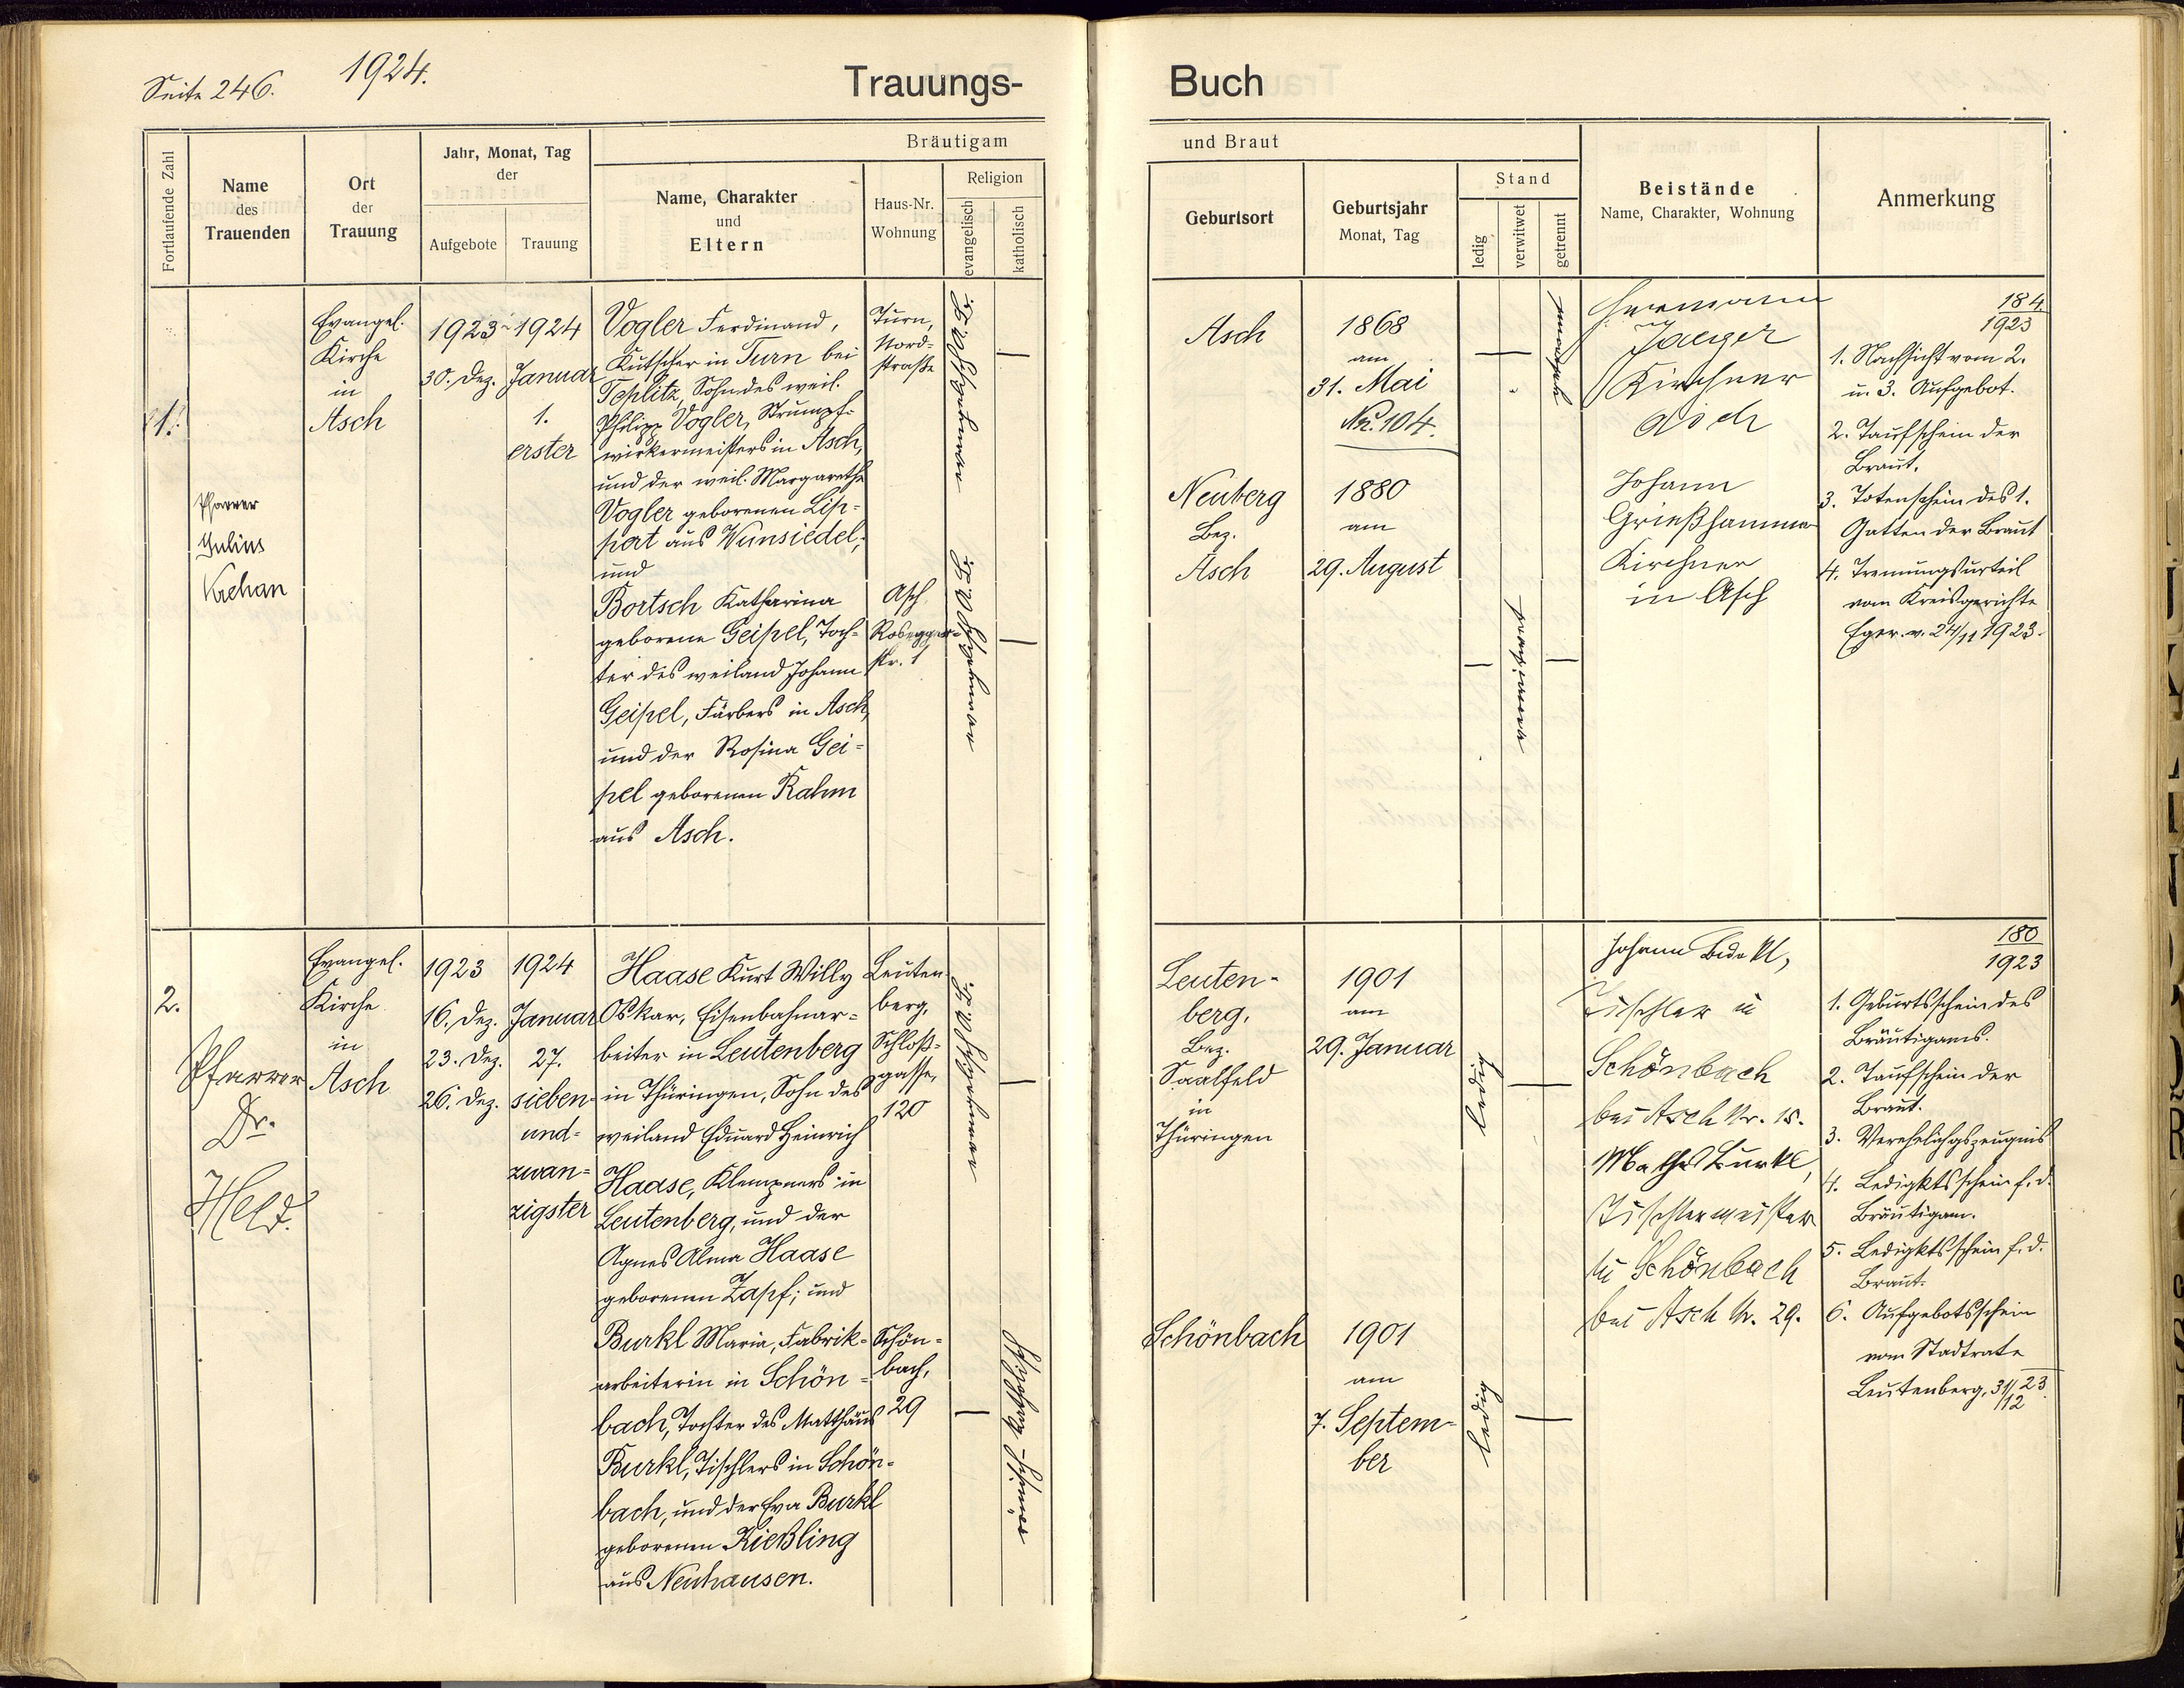 Seite 246.
1924.
Trauungs-
Fortlaufende Zahl
Name
des
Trauenden
Ort
der
Trauung
Jahr, Monat, Tag
der
Aufgebote
Trauung
Bräutigam
Name, Charakter
und
Eltern
Haus-Nr.
Wohnung
Religion
evangelisch
katholisch
1.
Pfarrer
Julius
Krehan
Evangel.
Kirche
in
Asch
1923
30. Dez.
1924
Januar
1.
erster
Vogler Ferdinand,
Kutscher in Turn bei
Teplitz, Sohn des weil.
Philipp Vogler, Strumpf-
wirkermeisters in Asch,
und der weil. Margarethe
Vogler geborenen Lip-
pert aus Wunsiedel;
und
Bortsch Katharina
geborene Geipel, Toch-
ter des weiland Johann
Geipel, Färbers in Asch,
und der Rosina Gei-
pel geborenen Rahm
aus Asch.
Turn,
Nord-
straße
Asch
Rosegger-
str. 1
2.
Pfarrer
Dr.
Held.
Evangel.
Kirche
in
Asch
1923
16. Dez.
23. Dez.
26. Dez.
1924
Januar
27.
sieben-
und-
zwan-
zigster
Haase Kurt Willy
Oskar, Eisenbahnar-
beiter in Leutenberg
in Thüringen, Sohn des
weiland Eduard Heinrich
Haase, Klempners in
Leutenberg, und der
Agnes Alma Haase
geborenen Zapf; und
Burkl Maria, Fabrik-
arbeiterin in Schön-
bach, Tochter des Matthäus
Burkl, Tischlers in Schön-
bach, und der Eva Burkl
geborenen Kießling
aus Neuhausen.
Leuten-
berg,
Schloß-
gasse,
120
Schön-
bach,
29
Buch
und Braut
Geburtsort
Geburtsjahr
Monat, Tag
Stand
ledig
verwitwet
getrennt
Beistände
Name, Charakter, Wohnung
Anmerkung
Asch
1868
am
31. Mai
Nr. 104.
Neuberg
Bez.
Asch
1880
am
29. August
Hermann
Jaeger
Kirchner
Asch
Johann
Grießhammer
Kirchner
in Asch
184
1923
1. Nachsicht vom 2.
u. 3. Aufgebot.
2. Taufschein der
Braut.
3. Totenschein des 1.
Gatten der Braut
4. Trennungsurteil
vom Kreisgerichte
Eger v. 24/11 1923.
Leuten-
berg,
Bez.
Saalfeld
in
Thüringen
1901
am
29. Januar
ledig
Schönbach
1901
am
7. Septem-
ber
ledig
Johann
Tischler in
Schönbach
bei Asch Nr. 15.
Math. Burkl,
Tischlermeister
in Schönbach
bei Asch Nr. 29.
180
1923
1. Geburtsschein des
Bräutigams.
2. Taufschein der
Braut.
3. Verehelichgszeugnis
4. Ledigktsschein f. d.
Bräutigam.
5. Ledigktsschein f. d.
Braut.
6. Aufgebotsschein
vom Stadtrate
Leutenberg, 31/12 23.